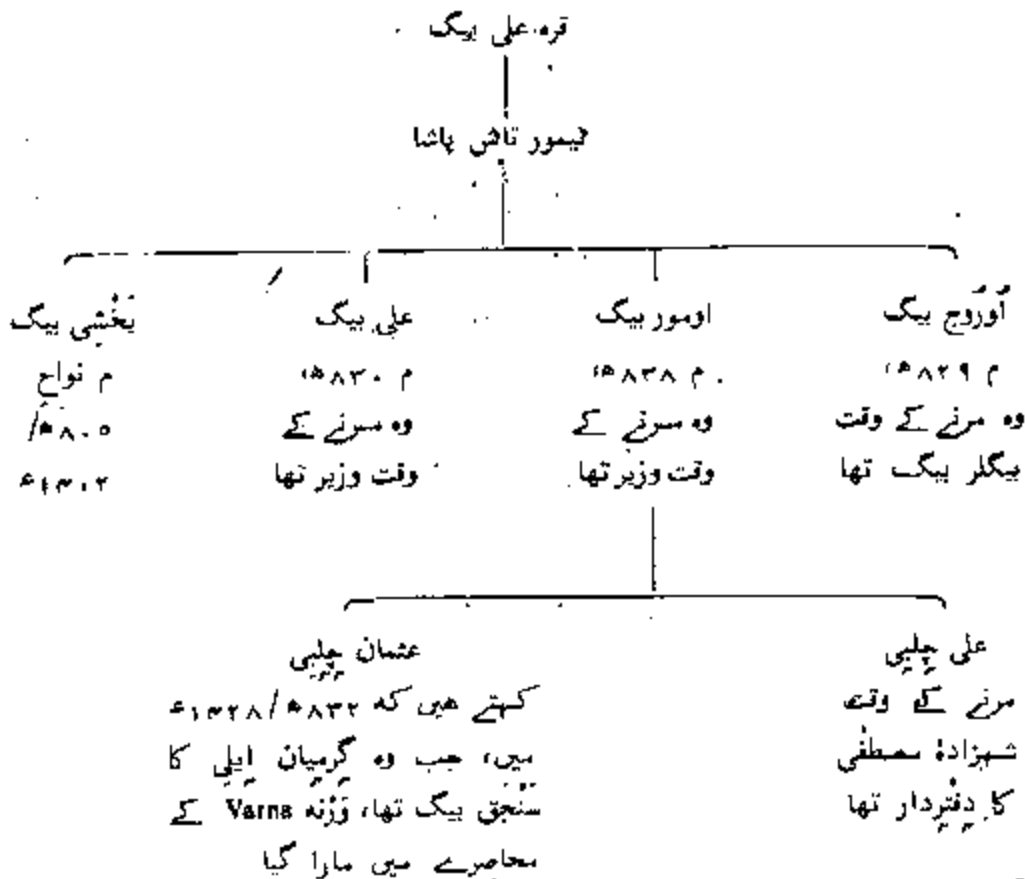 قرہ علی بیگ
تیمور تاش پاشا
اُورُوج بیگ
م ۸۲۹ھ،
وہ مرنے کے وقت
بیگلر بیگ تھا
اومور بیگ
م ۸۳۸ھ،
وہ مرنے کے
وقت وزیر تھا
علی بیگ
م ۸۳۰ھ،
وہ مرنے کے
وقت وزیر تھا
یَخْشِی بیگ
م نواح
۸۰۵ھ/
۱۴۰۲ء
علی چِلِبِی
مرنے کے وقت
شہزادۂ مصطفٰی
کا دِفْتِردار تھا
عثمان چِلِبِی
کہتے ھیں کہ ۸۳۲ھ/۱۴۲۸ء
میں، جب وہ گِرمِیان اِیلی کا
سَنْجَق بیگ تھا، وَرْنہ Varna کے
محاصرے میں مارا گیا